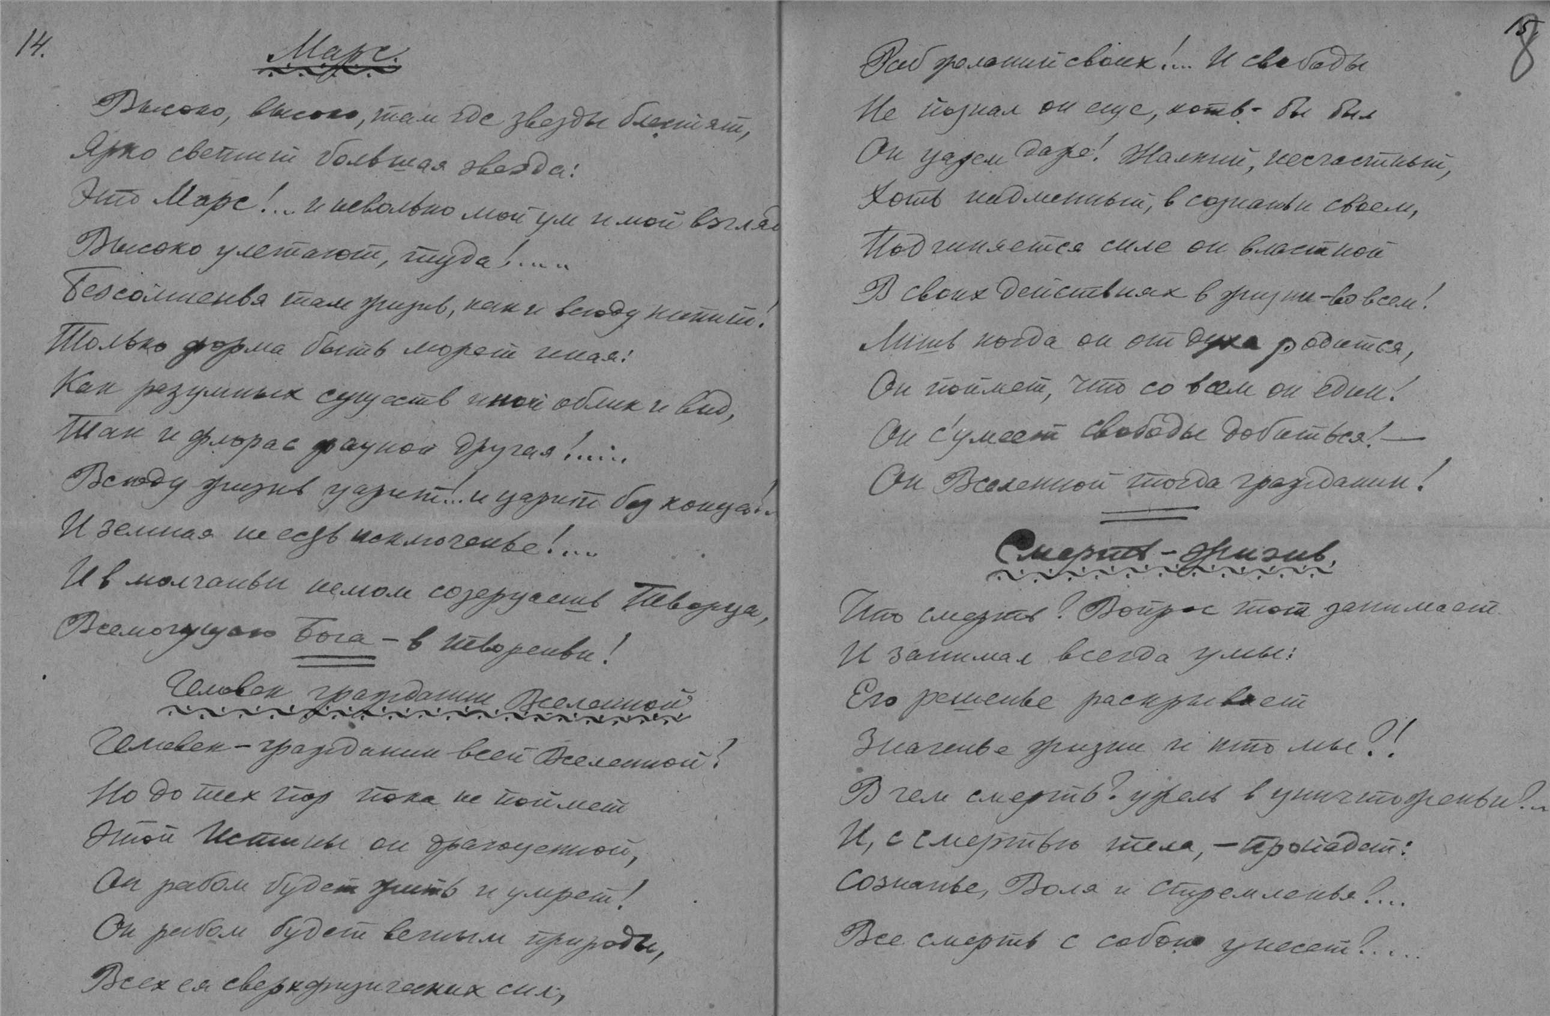 14.
Марс.
Высоко, высоко, там где звезды блестят,
Ярко светит большая звезда:
Это Марс!... и невольно мой ум и мой взгляд
Высоко улетают, туда!.....
Безсомненья там жизнь, как и всюду кипит!
Только форма быть может иная:
Как разумных существ иной облик и вид,
Так и флора с фауной другая!.....
Всюду жизнь царит!.. и царит без конца!..
И земная не есть исключенье!....
И в молчаньи немом созерцаешь Творца,
Всемогущаго Бога – в твореньи!
Человек гражданин Вселенной
Человек – гражданин всей Вселенной!
Но до тех пор пока не поймет
Этой Истины он драгоценной,
Он рабом будет жить и умрет!
Он рабом будет вечным природы,
Всех ея сверхфизических сил,
15
8
Раб желаний своих!... И свободы
Не познал он еще, хоть-бы был
Он царем даже! Жалкий, несчастный,
Хоть надменный, в сознаньи своем,
Подчиняется силе он властной
В своих действиях в жизни – во всем!
Лишь когда он от духа родится,
Он поймет, что со всем он един!
Он с'умеет свободы добиться! —
Он Вселенной тогда гражданин!
Смерть – жизнь
Что смерть? Вопрос тот занимает
И занимал всегда умы:
Его решенье раскрывает
Значенье жизни и кто мы?!
В чем смерть? ужель в уничтоженьи?..
И, с смертью тела, – пропадет:
Сознанье, Воля и Стремленья?...
Все смерть с собою унесет?....